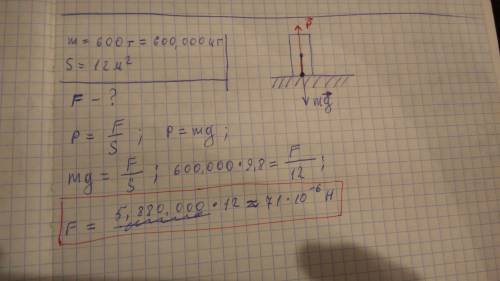 m = 600 т = 600,000 кг
S = 12 м²
F - ?
P = F/S ; P = mg ;
mg = F/S ; 600,000 · 9,8 = F/12 ;
F = 5,880,000 · 12 ≈ 71 · 10⁻⁶ Н
P
mg